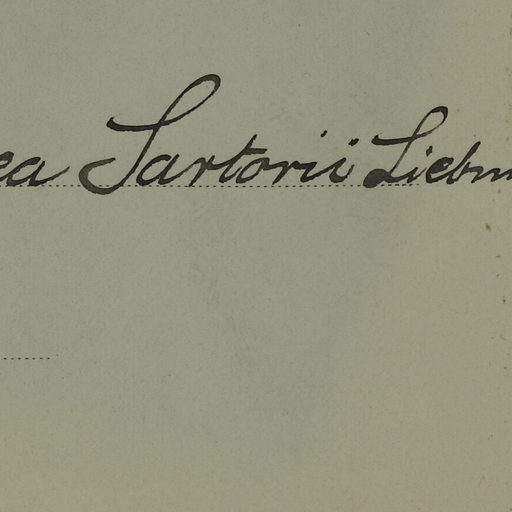 ea Sartorii Liebm